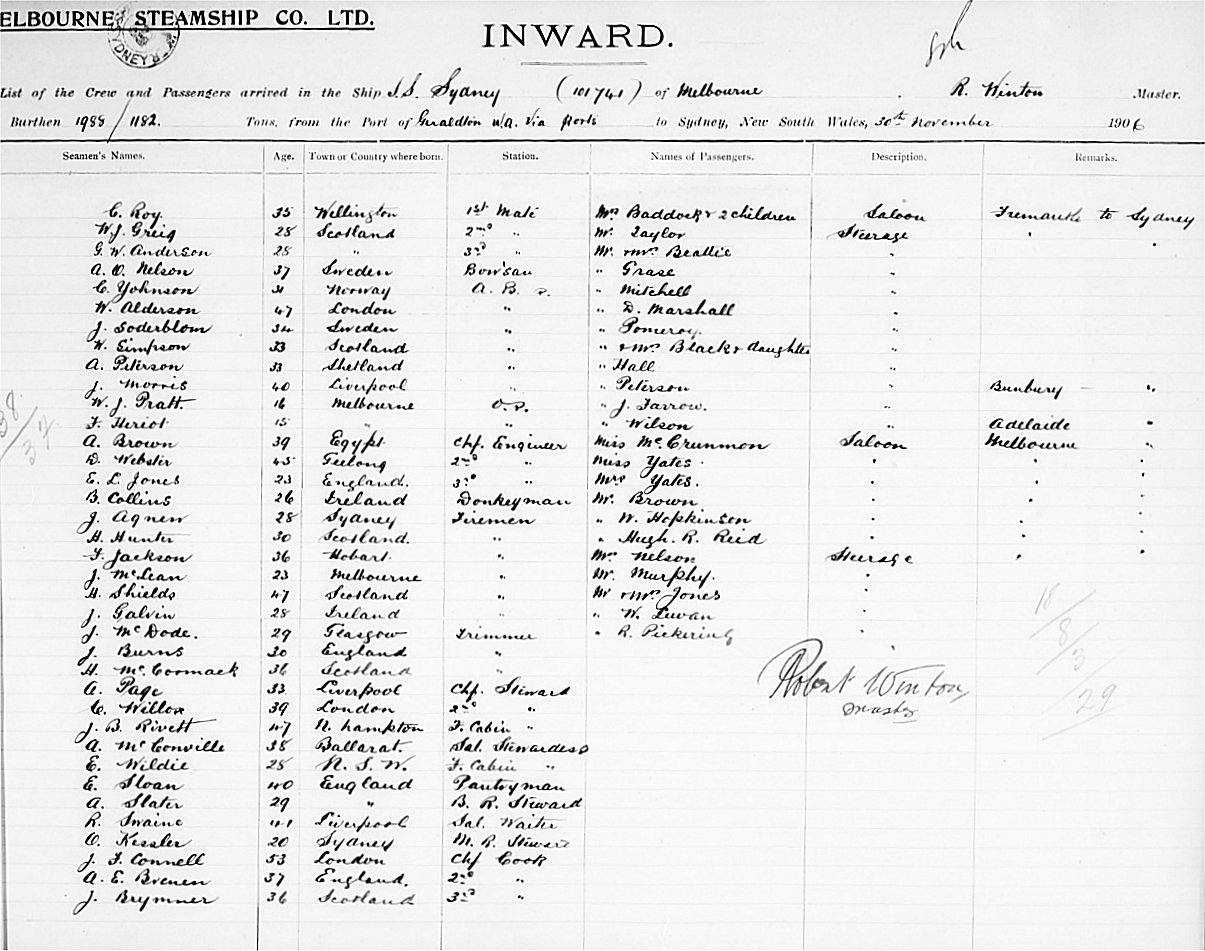 ELBOURNE STEAMSHIP CO. LTD.
SYDNEY
INWARD.
List of the Crew and Passengers arrived in the Ship S.S. Sydney (101741) of Melbourne R. Winton Master.
Burthen 1988/1182. Tons, from the Port of Geraldton W.A. Via ports to Sydney, New South Wales, 30th November 1906
Seamen's Names. Age. Town or Country where born. Station. Names of Passengers. Description. Remarks.
C. Roy 35 Wellington 1st Mate Mrs Baddock & 2 children Saloon Fremantle to Sydney
W. J. Greig 28 Scotland 2nd " Mr. Taylor Steerage " "
G. W. Anderson 28 " 3rd " Mr. & Mrs. Beattie "
A. O. Nelson 37 Sweden Bow'san " Grase "
C. Yohnson 31 Norway A. B. s. " Mitchell "
W. Alderson 47 London " " D. Marshall "
J. Soderblom 34 Sweden " " Pomeroy. "
W. Simpson 33 Scotland " " & Mrs Black & daughter "
A. Peterson 33 Shetland " " Hall "
J. Morris 40 Liverpool " " Peterson " Bunbury — "
W. J. Pratt. 16 Melbourne O.S. " J. Farrow. "
F. Heriot 15 " " " Wilson " Adelaide "
A. Brown 39 Egypt Chf. Engineer Miss McCrunmon Saloon Melbourne "
D. Webster 45 Geelong 2nd " Miss Yates " " "
E. L. Jones 23 England. 3rd " Mrs Yates. " " "
B. Collins 26 Ireland Donkeyman Mr. Brown " " "
J. Agnew 28 Sydney Firemen " W. Hopkinson " " "
H. Hunter 30 Scotland. " " Hugh. R. Reid " " "
F. Jackson 36 Hobart " Mrs Nelson Steerage " "
J. McLean 23 Melbourne " Mr. Murphy. "
H. Shields 47 Scotland " Mr & Mrs Jones "
J. Galvin 28 Ireland " " W. "
J. McDode. 29 Glasgow Trimmer " R. Pickering "
J. Burns 30 England " "
H. McCormack 36 Scotland "
A. Page 33 Liverpool Chf. Steward
C. Willox 39 London 2nd "
J. B. Rivett 47 N. hampton F. Cabin "
A. McConville 38 Ballarat. Sal. Stewardess
E. Wildie 28 N. S. W. F. Cabin "
E. Sloan 40 England Pantryman
A. Slater 29 " B. R. Steward
R. Swaine 41 Liverpool Sal. Waiter
O. Kessler 20 Sydney M. R. Steward
J. F. Connell 53 London Chf Cook
A. E. Brenen 37 England. 2nd "
J. Brymner 36 Scotland 3rd "
38/37
18/8/3/29
Robert Winton
Master